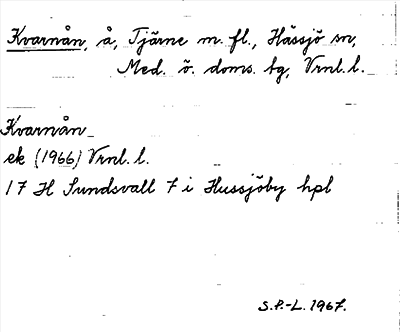 Kvarnån, å, Tjärne m. fl., Hässjö sn,
Med. ö. doms. tg, Vrnl. l.
Kvarnån
ek (1966) Vrnl. l.
17 H Sundsvall 7 i Hussjöby hpl
S.P.-L. 1967.